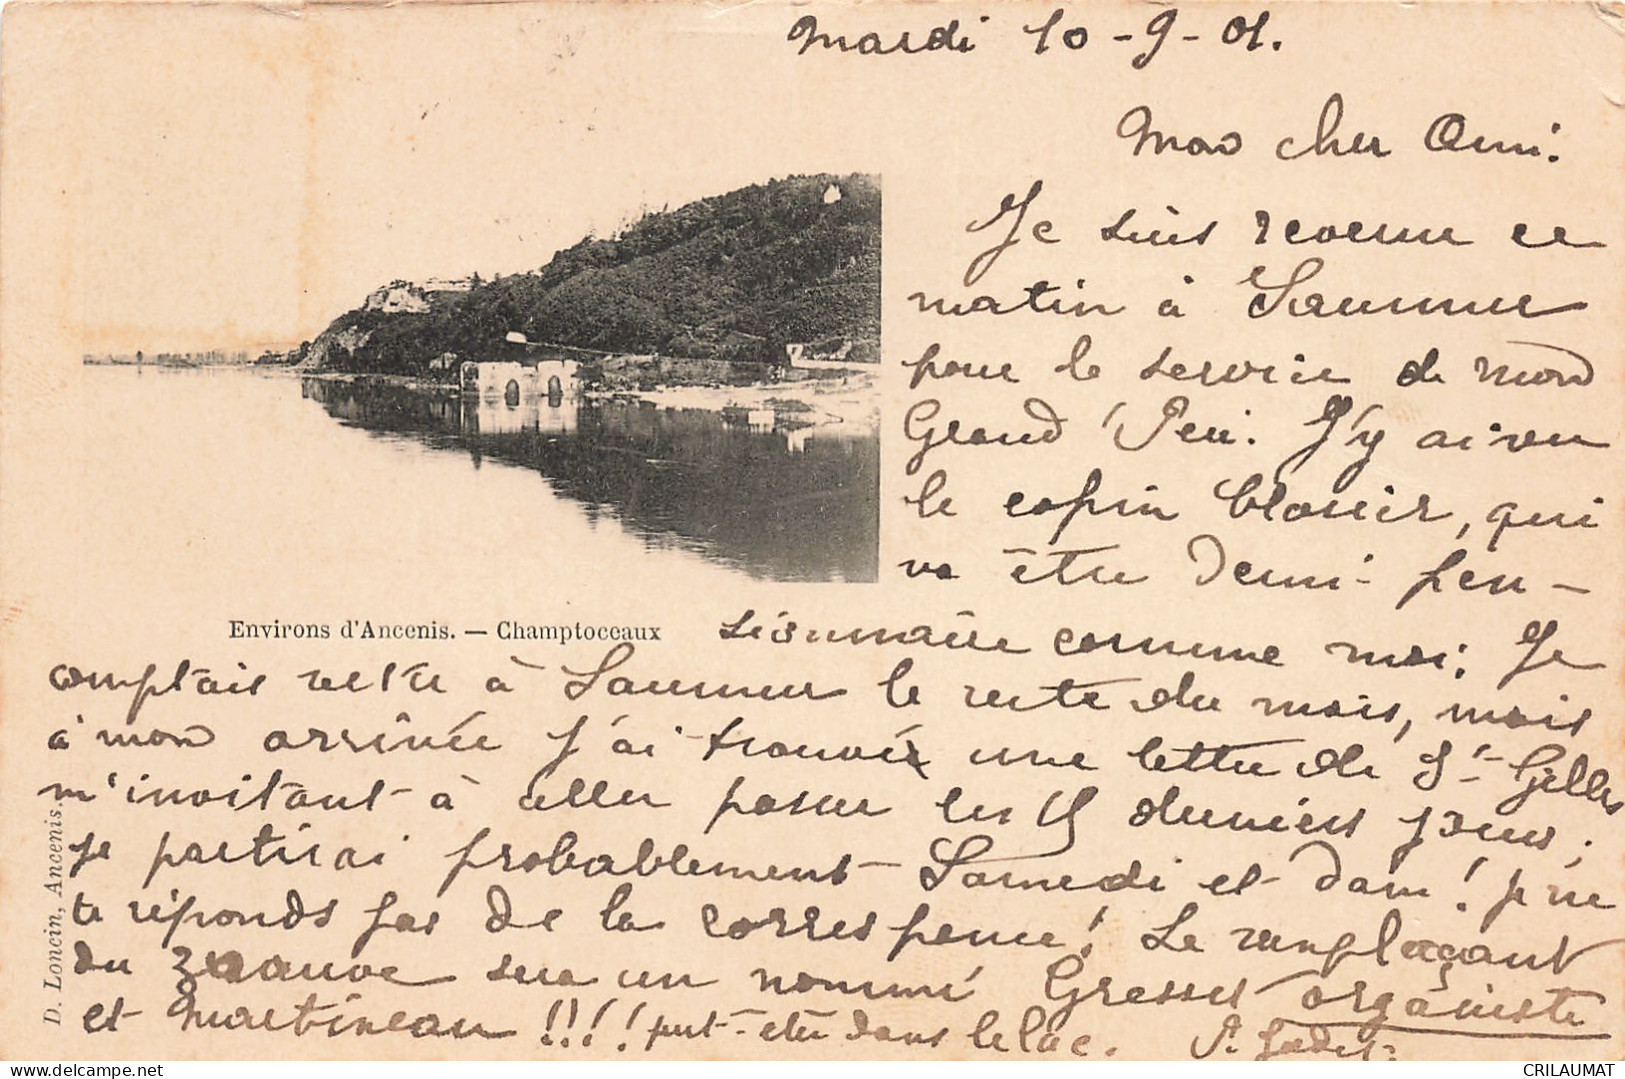 Mardi 10-9-01.
Mon cher Ami.
Je suis revenu ce
matin à Saumur
pour le service de mon
Grand'Père. J'y ai vu
le copin blosier, qui
va être demi-pen-
Environs d'Ancenis. — Champtoceaux
sionnaire comme moi. Je
comptais rester à Saumur le reste du mois, mais
à mon arrivée j'ai trouvé une lettre de St-Gilles
m'invitant à aller passer les 15 derniers jours;
je partirai probablement Samedi et dam! je ne
te réponds pas de la correspence! Le remplaçant
du zouave sera un nommé Gresset organiste
et Martineau!!!! put-être dans le lac. P.
D. Loncin, Ancenis.
CRILAUMAT
delcampe.net